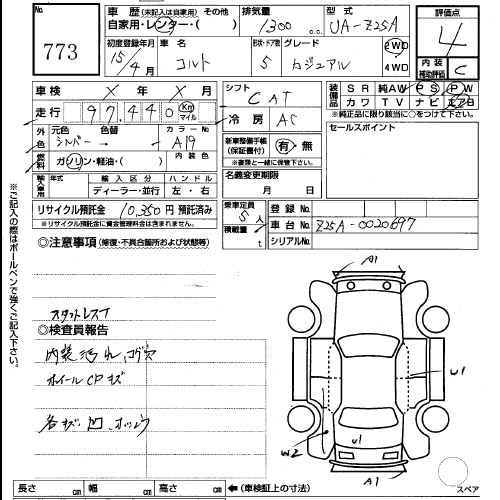 No. 773
車歴 (未記入は自家用) その他
自家用・レンター・( )
排気量 1300 c.c.
型式 UA-Z25A
評価点 4
初度登録年月 15/4月
車名 コルト
形状・ドア数 5
グレード カジュアル
2WD 4WD
内装補助評価 C
車検 × 年 × 月
走行 97,440 Km マイル
シフト CAT
冷房 AC
装備品 SR 純AW PS PW
カワ TV ナビ エアB
※純正品に限り該当に○をつけて下さい。
外色 元色 シルバー → 色替
カラーNo A19
燃料 ガソリン・軽油・( )
内装色
新車整備手帳 (保証書付) 有・無
※書類と一緒に保管下さい。
セールスポイント
輸入車用 年式 輸入区分 ハンドル
ディーラー・並行 左・右
名義変更期限 月 日
リサイクル預託金 10,350円 預託済み
※リサイクル預託金に資金管理料金は含まれません。
乗車定員 5人
積載量 t
登録No.
車台No. Z25A-0020697
シリアルNo.
◎注意事項 (修復・不具合箇所および状態等)
スタットレスT
◎検査員報告
内装汚れ、コゲ穴
ホイールCPキズ
各キズ、凹、
A1
U1
W2
U1
A1
長さ cm 幅 cm 高さ cm ←(車検証上の寸法)
スペア
※ご記入の際はボールペンで強くご記入下さい。